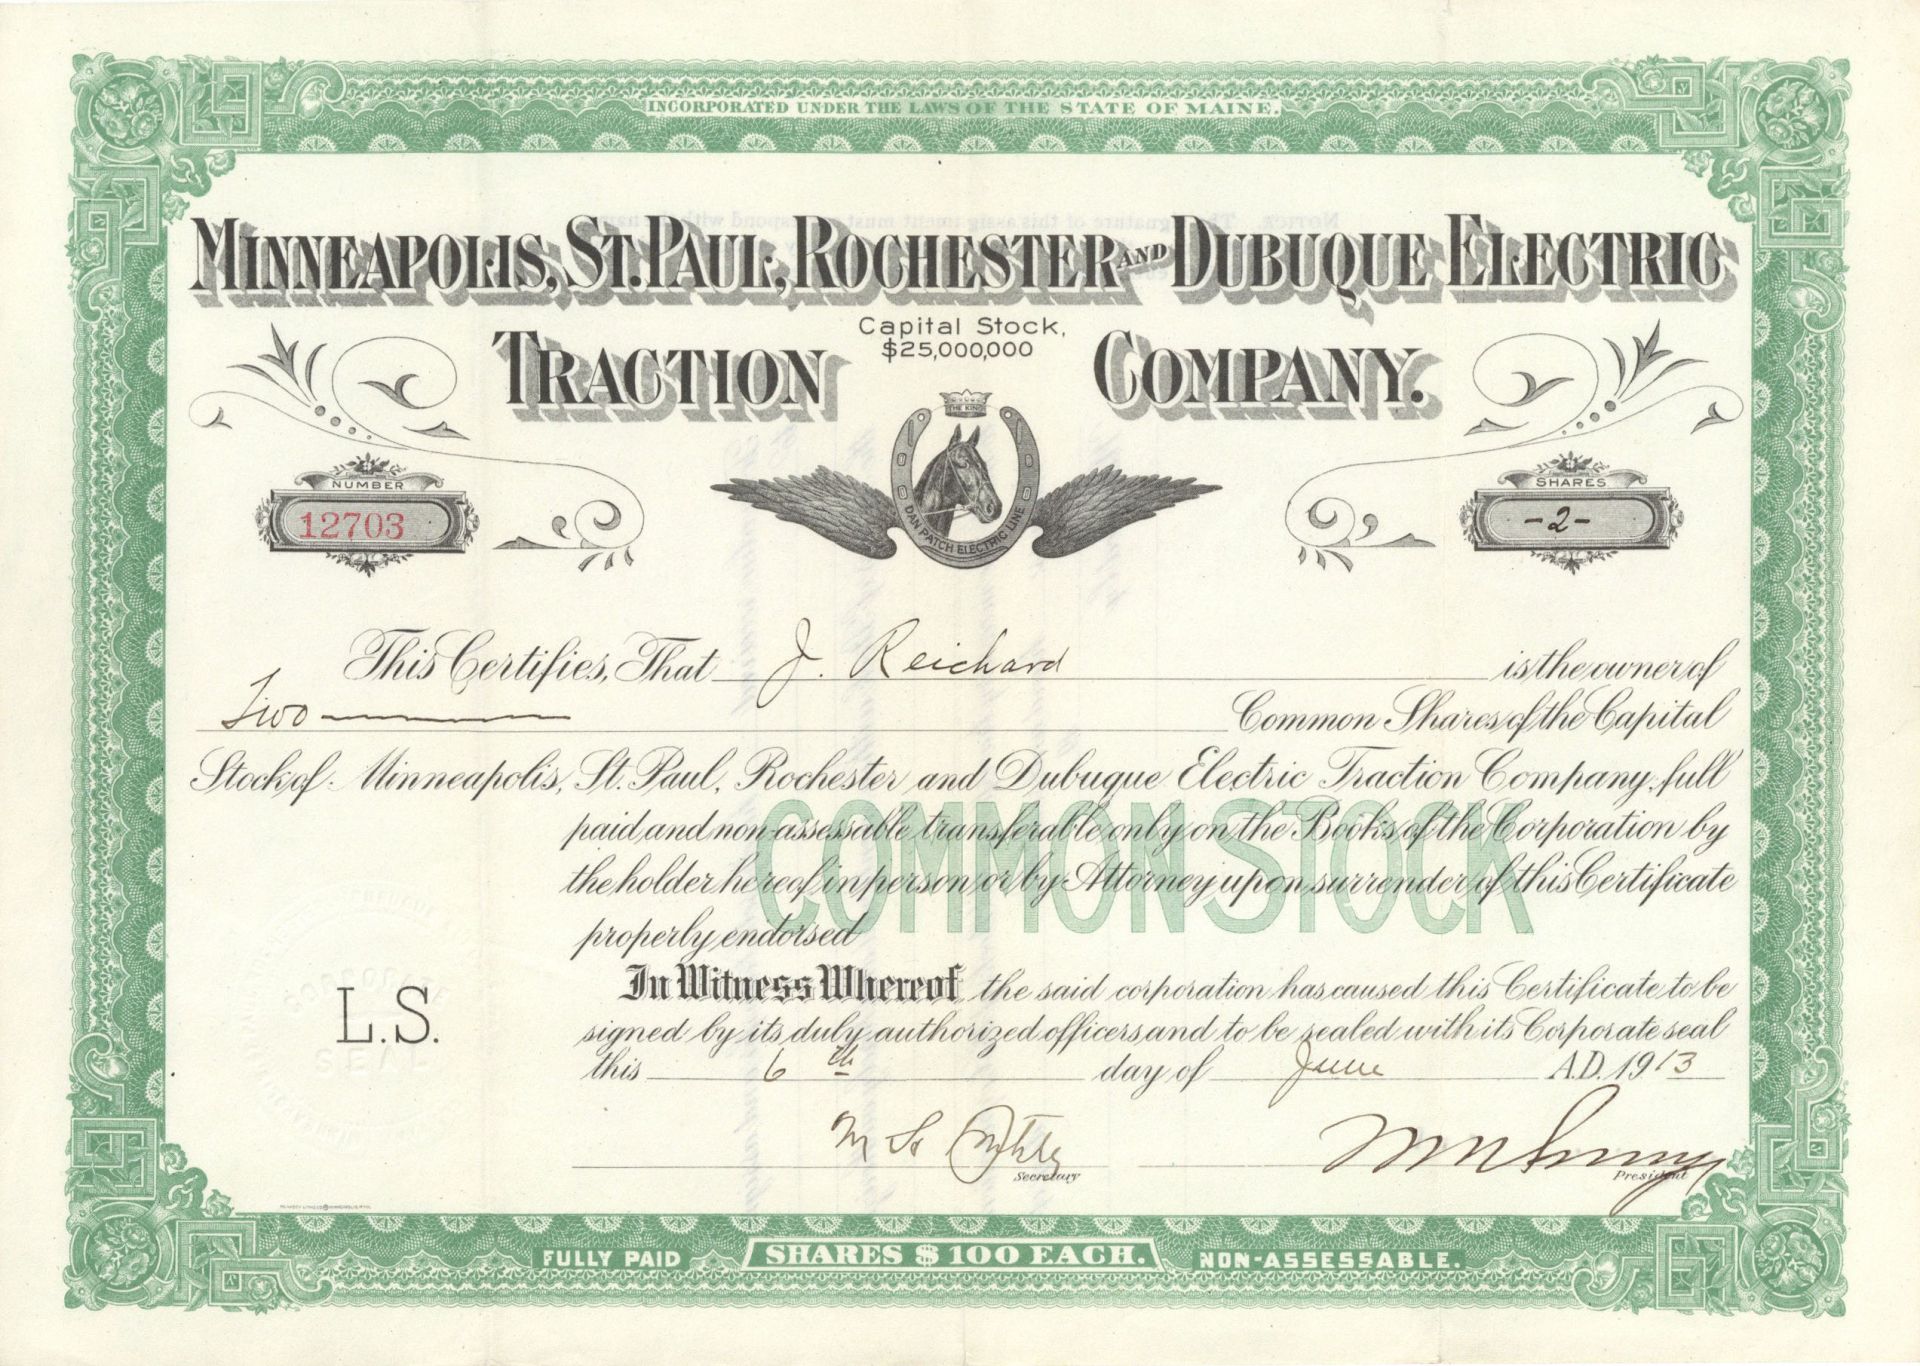 INCORPORATED UNDER THE LAWS OF THE STATE OF MAINE.
MINNEAPOLIS, ST. PAUL, ROCHESTER AND DUBUQUE ELECTRIC
TRACTION COMPANY.
Capital Stock,
$25,000,000
THE KING
DAN PATCH ELECTRIC LINE
NUMBER
12703
SHARES
-2-
This Certifies, That J. Reichard is the owner of
Two Common Shares of the Capital
Stock of Minneapolis, St. Paul, Rochester and Dubuque Electric Traction Company, full
paid and non-assessable transferable only on the Books of the Corporation by
the holder hereof in person or by Attorney upon surrender of this Certificate
properly endorsed
COMMON STOCK
In Witness Whereof, the said corporation has caused this Certificate to be
signed by its duly authorized officers and to be sealed with its Corporate seal
this 6th day of June A.D. 1913
L.S.
CORPORATE
SEAL
Secretary
President
FULLY PAID
SHARES $100 EACH.
NON-ASSESSABLE.